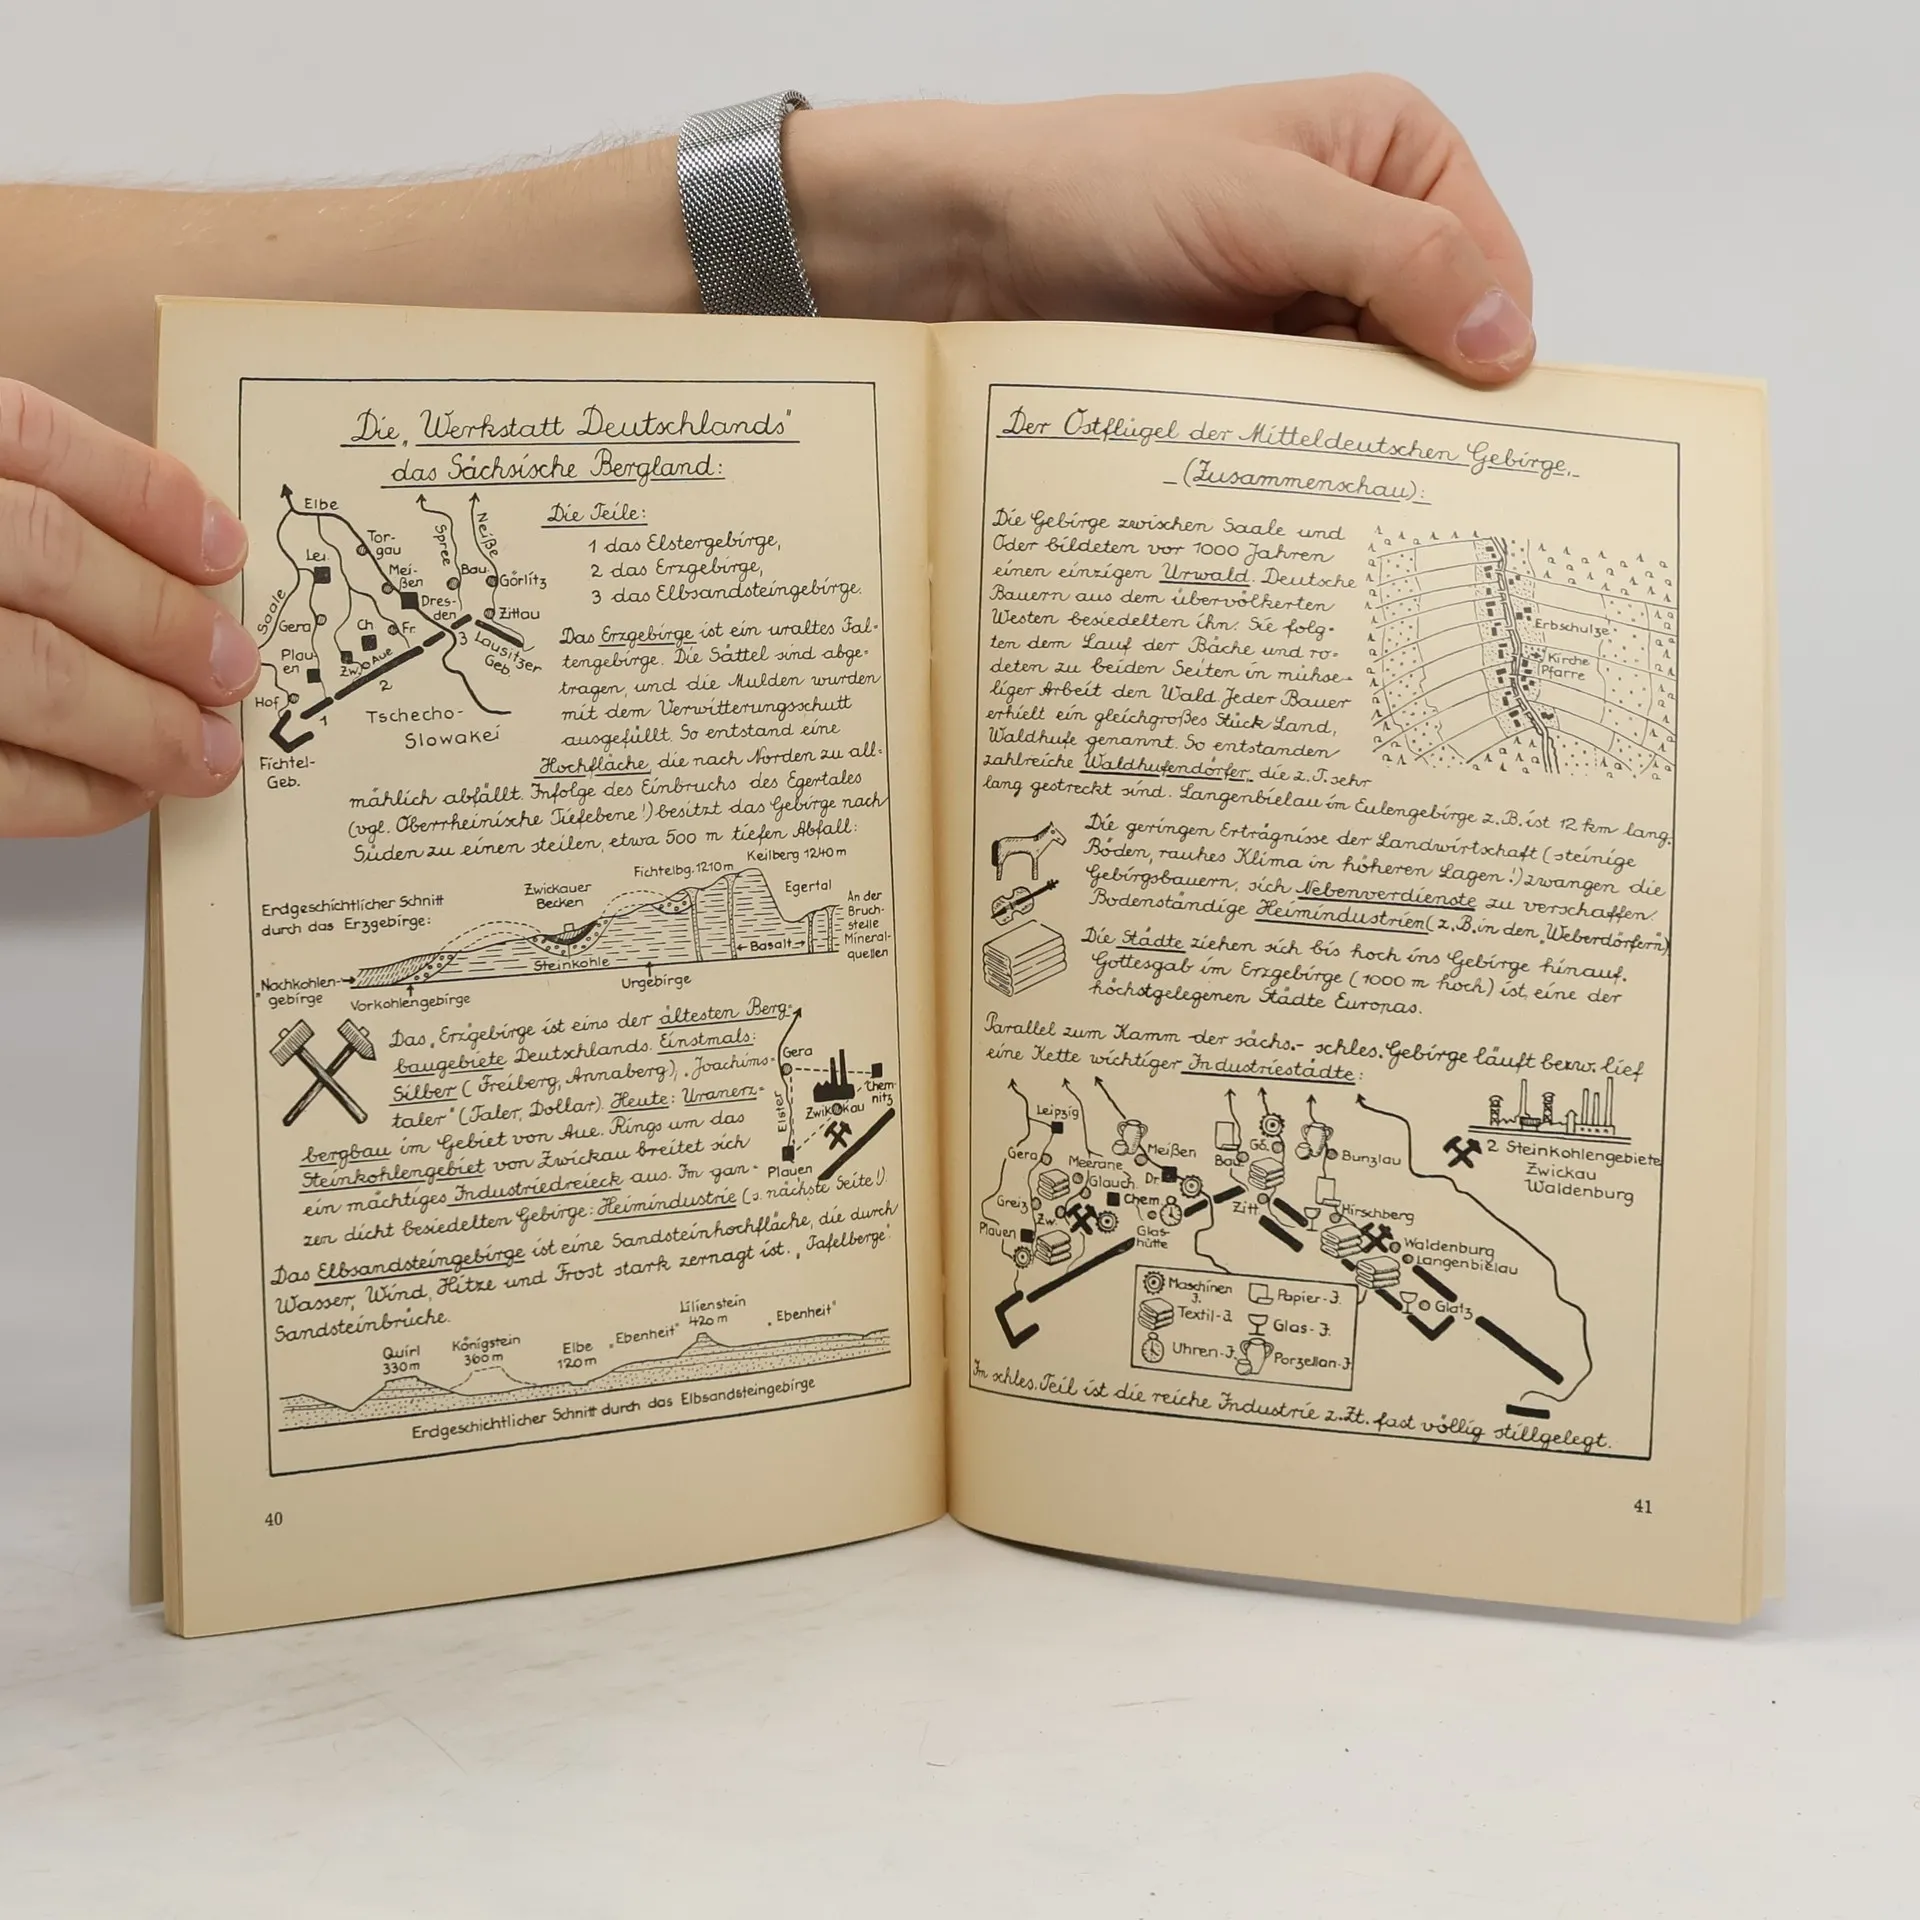 Die „Werkstatt Deutschlands"
das Sächsische Bergland:
Elbe
Tor-
gau
Spree
Neiße
Lei.
Mei-
ßen
Bau.
Görlitz
Dres-
den
Saale
Gera
Ch.
Fr.
Zittau
Plau-
en
Zw.
Aue
3
Lausitzer
Geb.
2
Hof
1
Tschecho-
Slowakei
Fichtel-
Geb.
Die Teile:
1 das Elstergebirge,
2 das Erzgebirge,
3 das Elbsandsteingebirge.
Das Erzgebirge ist ein uraltes Fal-
tengebirge. Die Sättel sind abge-
tragen, und die Mulden wurden
mit dem Verwitterungsschutt
ausgefüllt. So entstand eine
Hochfläche, die nach Norden zu all-
mählich abfällt. Infolge des Einbruchs des Egertales
(vgl. Oberrheinische Tiefebene!) besitzt das Gebirge nach
Süden zu einen steilen, etwa 500 m tiefen Abfall:
Erdgeschichtlicher Schnitt
durch das Erzgebirge:
Zwickauer
Becken
Fichtelbg. 1210 m
Keilberg 1240 m
Egertal
An der
Bruch-
stelle
Mineral-
quellen
Basalt
Steinkohle
Urgebirge
Nachkohlen-
gebirge
Vorkohlengebirge
Das Erzgebirge ist eins der ältesten Berg-
baugebiete Deutschlands. Einstmals:
Silber (Freiberg, Annaberg), „Joachims-
taler" (Taler, Dollar). Heute: Uranerz-
bergbau im Gebiet von Aue. Rings um das
Steinkohlengebiet von Zwickau breitet sich
ein mächtiges Industriedreieck aus. Im gan-
zen dicht besiedelten Gebirge: Heimindustrie (s. nächste Seite!).
Gera
Chem-
nitz
Zwikkau
Elster
Plauen
Das Elbsandsteingebirge ist eine Sandsteinhochfläche, die durch
Wasser, Wind, Hitze und Frost stark zernagt ist. „Tafelberge".
Sandsteinbrüche.
Quirl
330 m
Königstein
360 m
Elbe
120 m
„Ebenheit"
Lilienstein
420 m
„Ebenheit"
Erdgeschichtlicher Schnitt durch das Elbsandsteingebirge
40
Der Ostflügel der Mitteldeutschen Gebirge.
(Zusammenschau):
Die Gebirge zwischen Saale und
Oder bildeten vor 1000 Jahren
einen einzigen Urwald. Deutsche
Bauern aus dem übervölkerten
Westen besiedelten ihn. Sie folg-
ten dem Lauf der Bäche und ro-
deten zu beiden Seiten in mühse-
liger Arbeit den Wald. Jeder Bauer
erhielt ein gleichgroßes Stück Land,
Waldhufe genannt. So entstanden
zahlreiche Waldhufendörfer, die z. T. sehr
lang gestreckt sind. Langenbielau im Eulengebirge z. B. ist 12 km lang.
Erbschulze
Kirche
Pfarre
Die geringen Erträgnisse der Landwirtschaft (steinige
Böden, rauhes Klima in höheren Lagen!) zwangen die
Gebirgsbauern, sich Nebenverdienste zu verschaffen.
Bodenständige Heimindustrien (z. B. in den „Weberdörfern")
Die Städte ziehen sich bis hoch ins Gebirge hinauf.
Gottesgab im Erzgebirge (1000 m hoch) ist eine der
höchstgelegenen Städte Europas.
Parallel zum Kamm der sächs.- schles. Gebirge läuft bezw. lief
eine Kette wichtiger Industriestädte:
Leipzig
Gera
Meerane
Glauch.
Meißen
Dr.
Bau.
Gö.
Bunzlau
2 Steinkohlengebiete
Zwickau
Waldenburg
Greiz
Zw.
Chem.
Plauen
Glas-
hütte
Zitt.
Hirschberg
Waldenburg
Langenbielau
Glatz
Maschinen
J.
Papier-J.
Textil-J.
Glas-J.
Uhren-J.
Porzellan-J.
Im schles. Teil ist die reiche Industrie z. Zt. fast völlig stillgelegt.
41